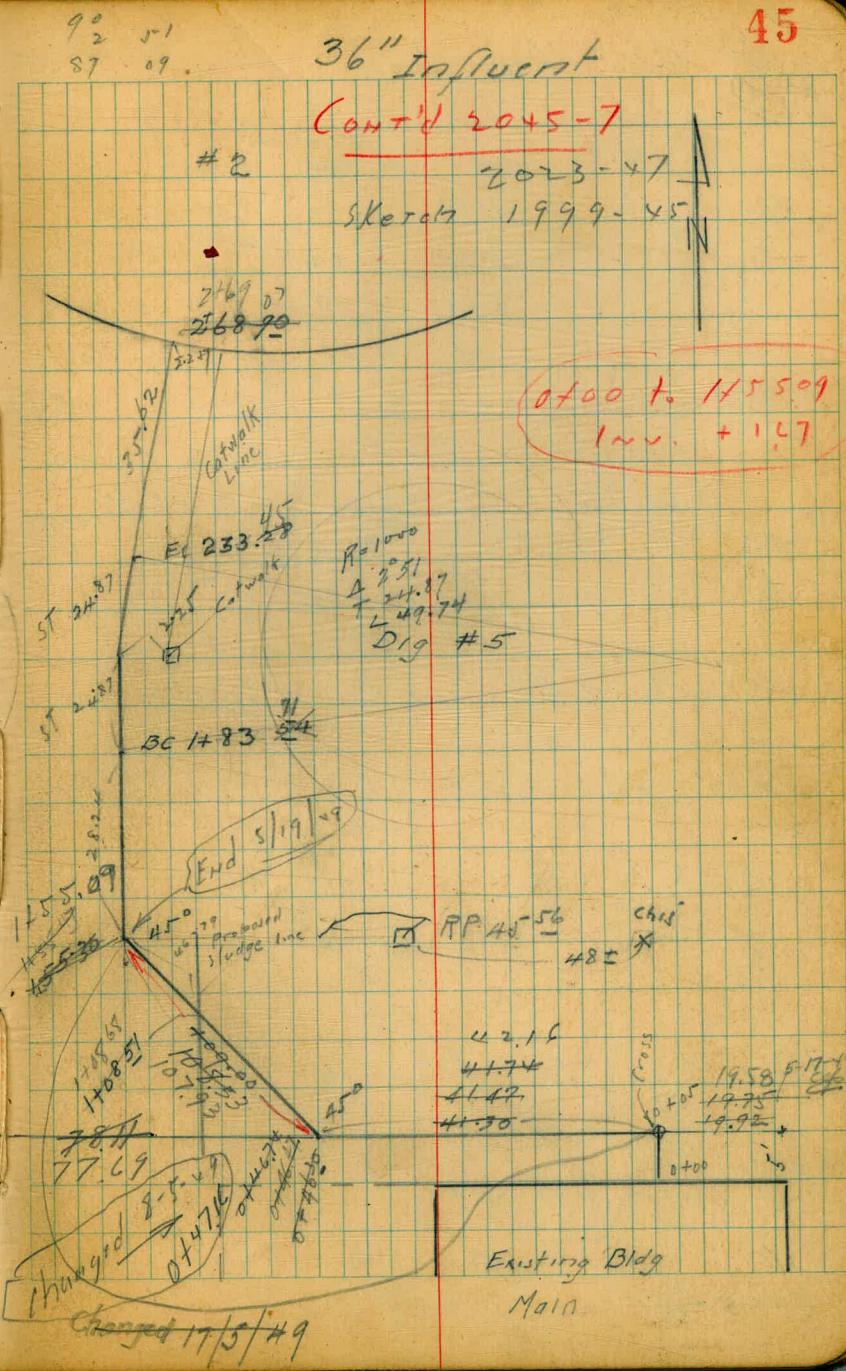 45
90
2 51
87 09
36" Influent
Cont'd 2045-7
2023-47
Sketch 1999-45
#2
N
2+69 07
2+68 90
0+00 to 1+55.09
Inv. + 1.67
35.62
Catwalk
Line
EC 233.28
45
R=1000
Δ 2°51
T 24.87
L 49.74
Dig #5
ST 24.87
2.25
Catwalk
ST 24.87
BC 1+83 54
71
28.24
End 5/19/49
1+55.09
45°
proposed
sludge line
RP 45-56
chis
X
48±
1+08.65
1+08.51
45°
42.16
41.74
41.47
41.30
cross
0+05
19.58
19.75
19.92
5'
0+00
78.11
77.69
0+46.74
0+46.30
Changed 8-5-49
0+47.16
Existing Bldg
Main
Changed 17/5/49